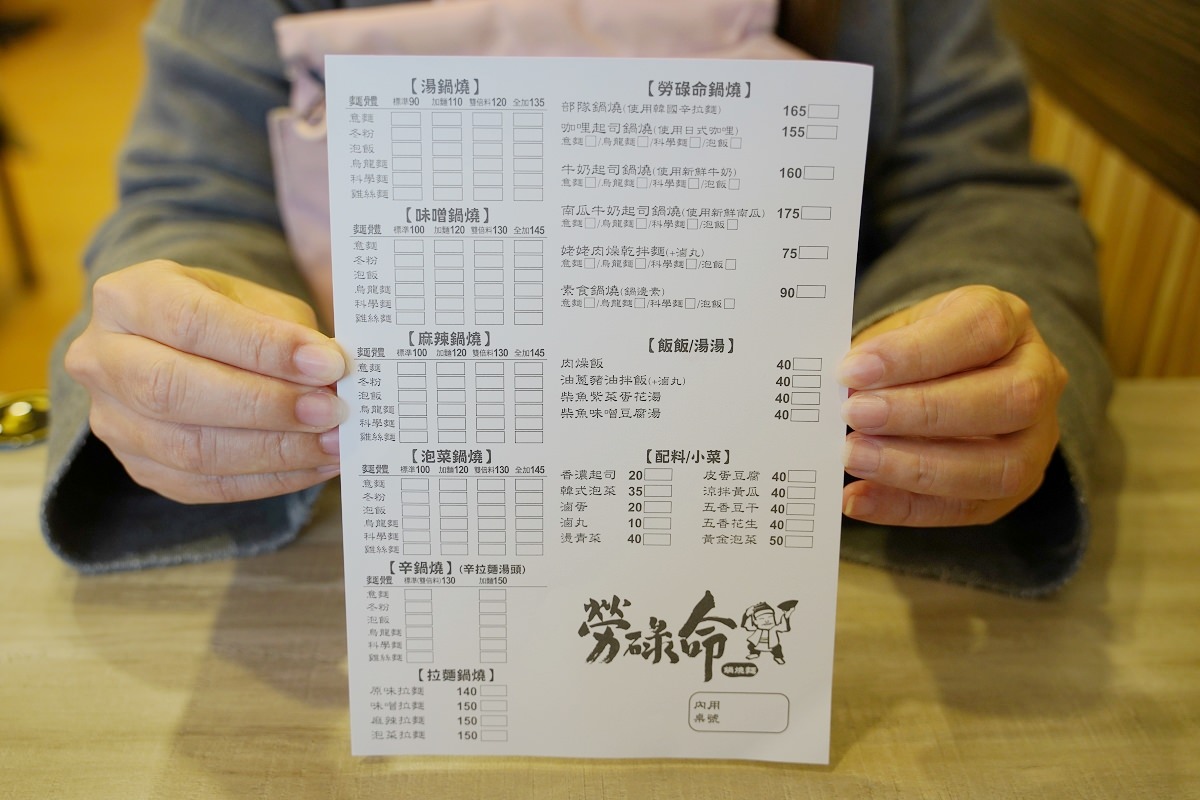 【湯鍋燒】
麵體 標準90 加麵110 雙倍料120 全加135
意麵
冬粉
泡飯
烏龍麵
科學麵
雞絲麵
【味噌鍋燒】
麵體 標準100 加麵120 雙倍料130 全加145
意麵
冬粉
泡飯
烏龍麵
科學麵
雞絲麵
【麻辣鍋燒】
麵體 標準100 加麵120 雙倍料130 全加145
意麵
冬粉
泡飯
烏龍麵
科學麵
雞絲麵
【泡菜鍋燒】
麵體 標準100 加麵120 雙倍料130 全加145
意麵
冬粉
泡飯
烏龍麵
科學麵
雞絲麵
【辛鍋燒】(辛拉麵湯頭)
麵體 標準(雙倍料)130 加麵150
意麵
冬粉
泡飯
烏龍麵
科學麵
雞絲麵
【拉麵鍋燒】
原味拉麵 140
味噌拉麵 150
麻辣拉麵 150
泡菜拉麵 150
【勞碌命鍋燒】
部隊鍋燒(使用韓國辛拉麵) 165
咖哩起司鍋燒(使用日式咖哩) 155
意麵□/烏龍麵□/科學麵□/泡飯□
牛奶起司鍋燒(使用新鮮牛奶) 160
意麵□/烏龍麵□/科學麵□/泡飯□
南瓜牛奶起司鍋燒(使用新鮮南瓜) 175
意麵□/烏龍麵□/科學麵□/泡飯□
姥姥肉燥乾拌麵(+滷丸) 75
意麵□/烏龍麵□/科學麵□/泡飯□
素食鍋燒(鍋邊素) 90
意麵□/烏龍麵□/科學麵□/泡飯□
【飯飯/湯湯】
肉燥飯 40
油蔥豬油拌飯(+滷丸) 40
柴魚紫菜蛋花湯 40
柴魚味噌豆腐湯 40
【配料/小菜】
香濃起司 20 皮蛋豆腐 40
韓式泡菜 35 涼拌黃瓜 40
滷蛋 20 五香豆干 40
滷丸 10 五香花生 40
燙青菜 40 黃金泡菜 50
勞碌命
鍋燒麵
內用
桌號